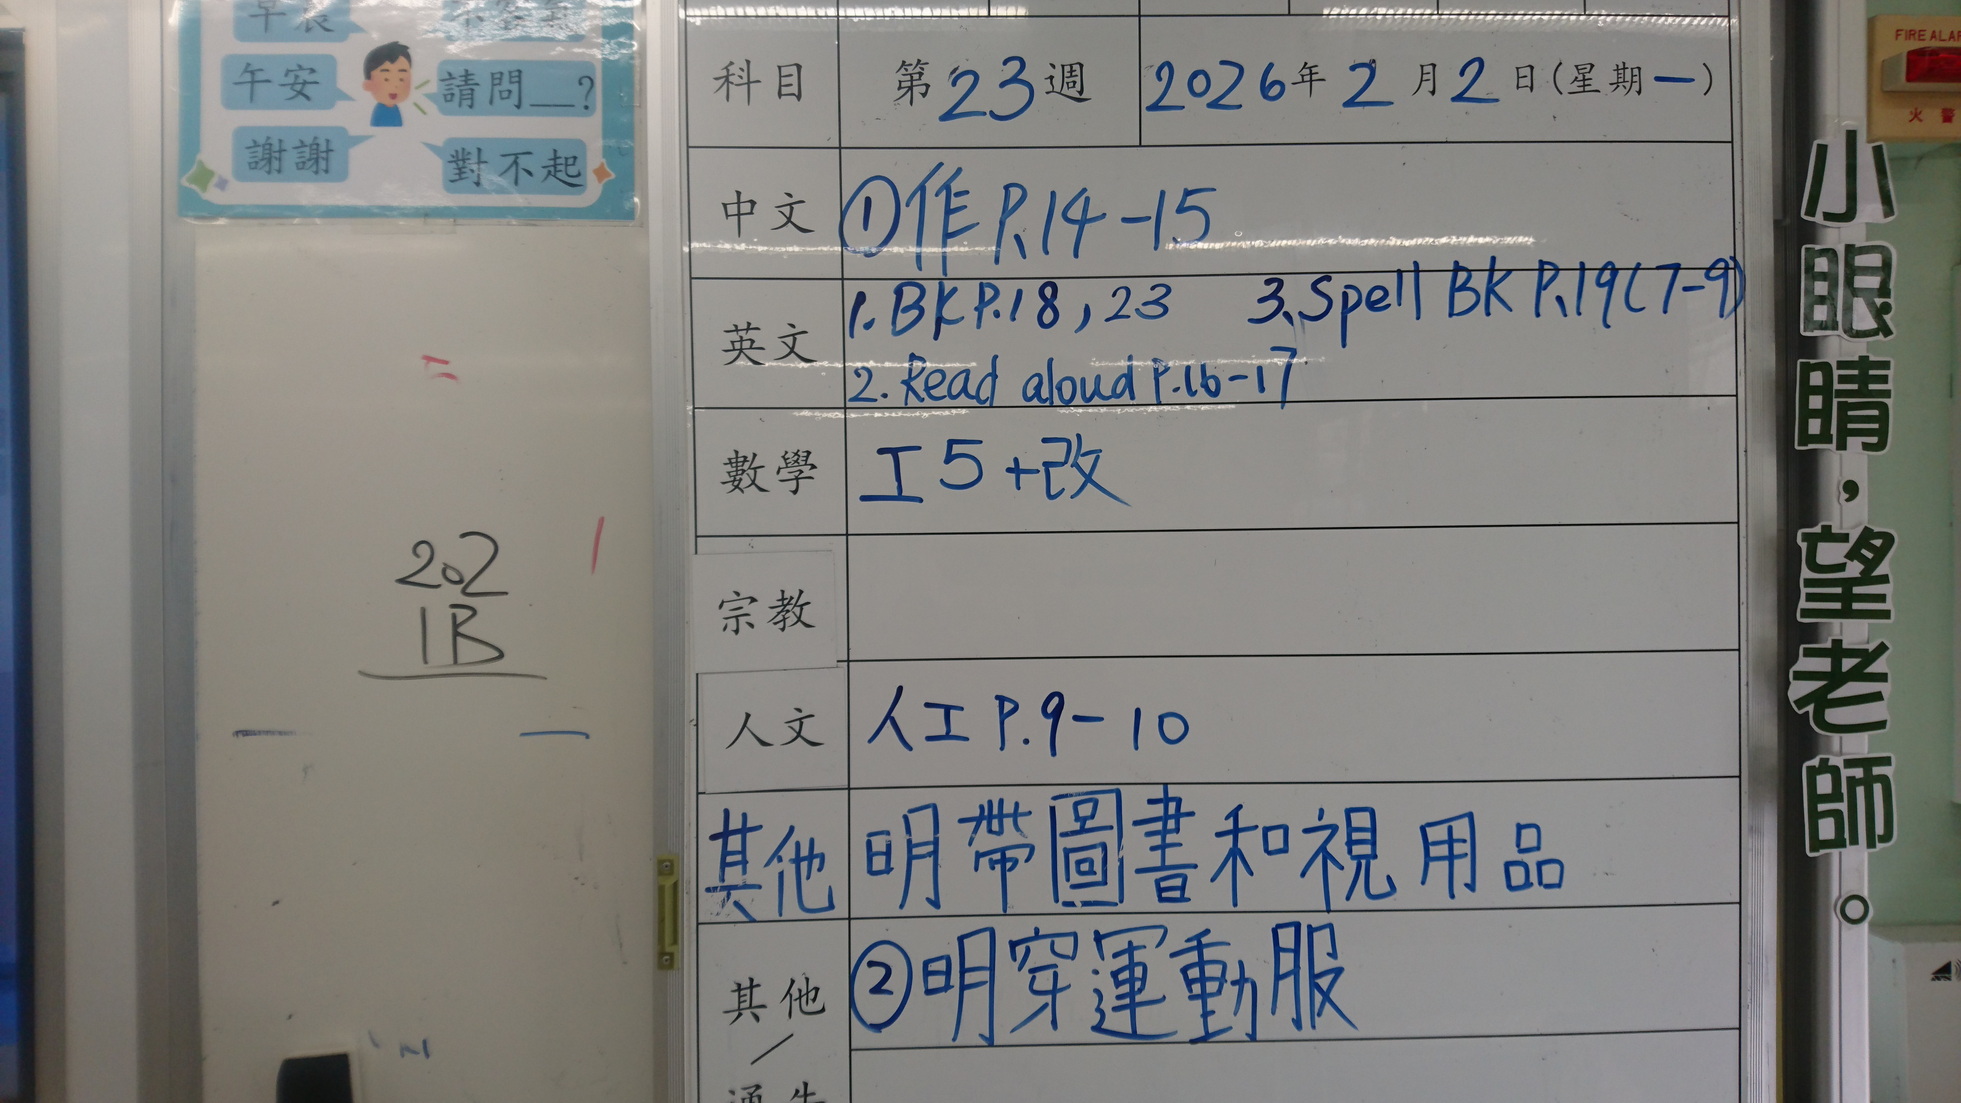 午安
請問__?
謝謝
對不起
202
1B
科目 第23週 2026年2月2日(星期一)
中文 ①作P.14-15
英文 1. BK P.18, 23 3. Spell BK P.19(7-9)
2. Read aloud P.16-17
數學 工5+改
宗教
人文 人工P.9-10
其他 明帶圖書和視用品
其他 ②明穿運動服
/
小眼睛，望老師。
火警